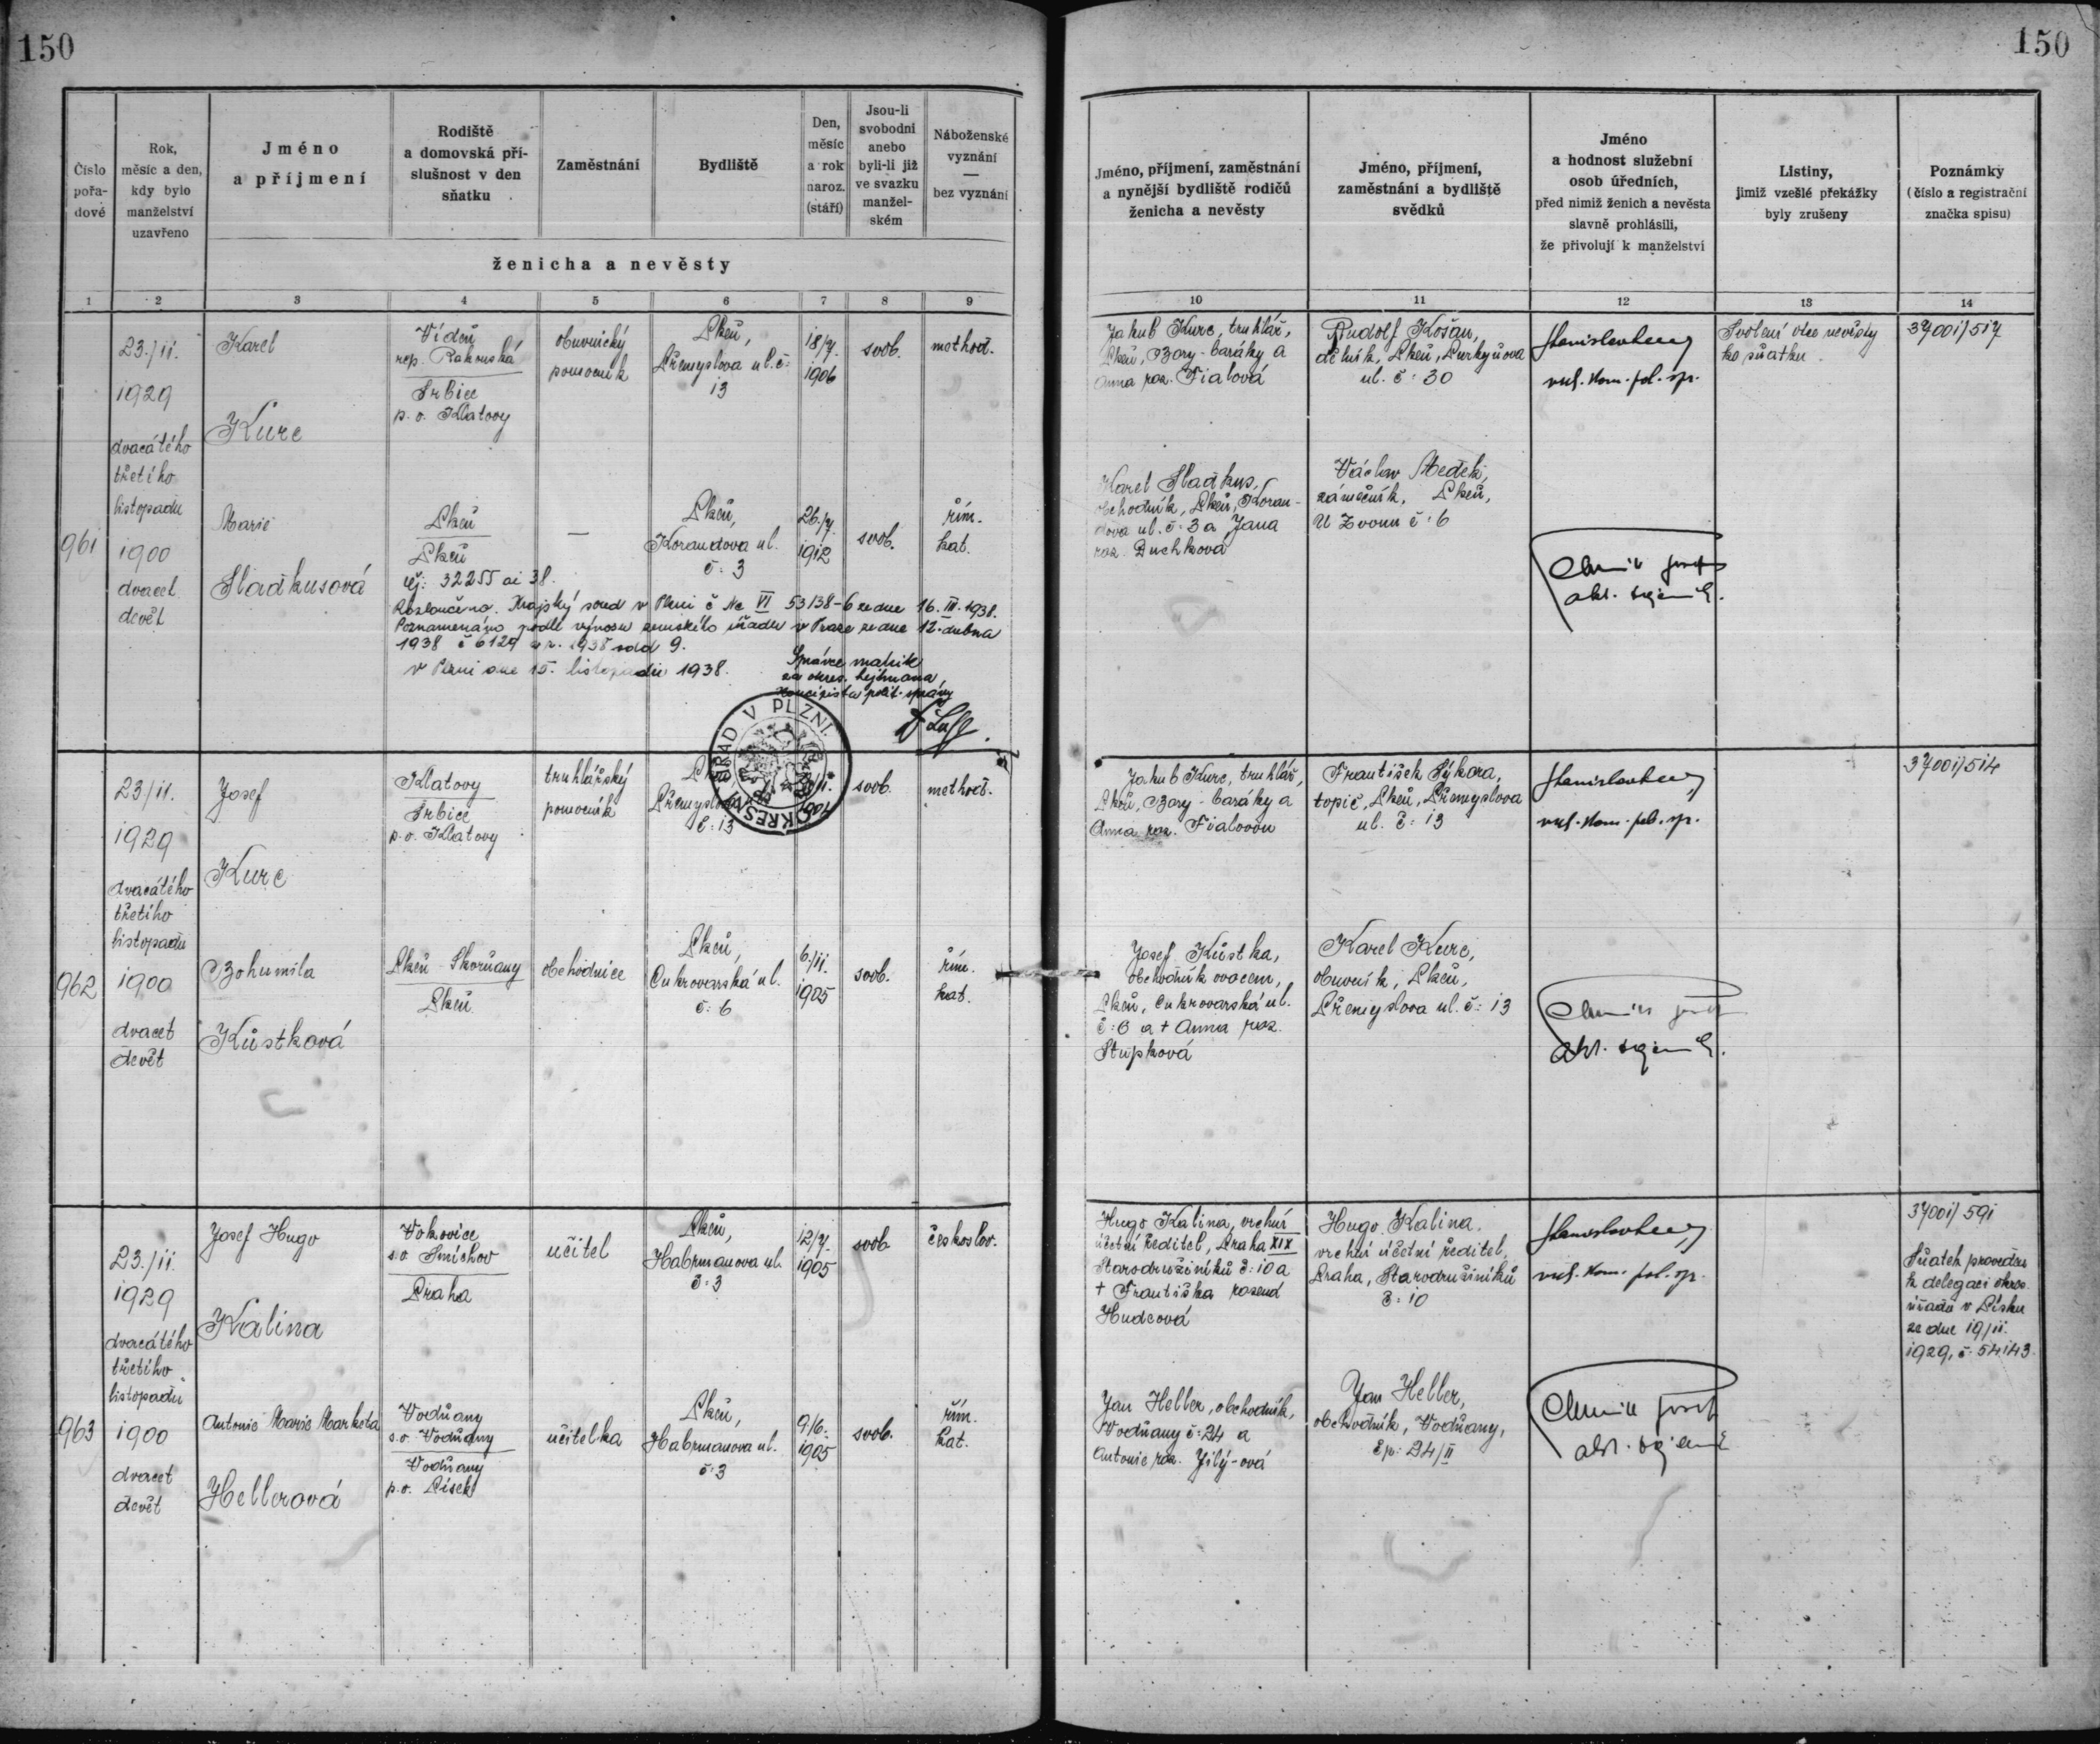 150
150
Číslo
pořa-
dové
Rok,
měsíc a den,
kdy bylo
manželství
uzavřeno
Jméno
a příjmení
Rodiště
a domovská pří-
slušnost v den
sňatku
Zaměstnání
Bydliště
Den,
měsíc
a rok
naroz.
(stáří)
Jsou-li
svobodni
anebo
byli-li již
ve svazku
manžel-
ském
Náboženské
vyznání
—
bez vyznání
ženicha a nevěsty
Jméno, příjmení, zaměstnání
a nynější bydliště rodičů
ženicha a nevěsty
Jméno, příjmení,
zaměstnání a bydliště
svědků
Jméno
a hodnost služební
osob úředních,
před nimiž ženich a nevěsta
slavně prohlásili,
že přivolují k manželství
Listiny,
jimiž vzešlé překážky
byly zrušeny
Poznámky
(číslo a registrační
značka spisu)
1 2 3 4 5 6 7 8 9 10 11 12 13 14
961
23./11.
1929
dvacátého
třetího
listopadu
1900
dvacet
devět
Karel
Kurc
Vídeň
rep. Rakouská
Srbice
p. o. Klatovy
obuvnický
pomocník
Plzeň,
Přemyslova ul. č:
13
18/7.
1906
svob.
method.
Jakub Kurc, truhlář,
Plzeň, Bory-baráky a
Anna roz. Fialová
Rudolf Košan,
dělník, Plzeň, Purkyňova
ul. č: 30
vrch. kom. pol. spr.
Svolení otce nevěsty
ke sňatku.
37001/517
Marie
Sladkusová
Plzeň
Plzeň
—
Plzeň,
Korandova ul.
č: 3
26./7.
1912
svob.
řím.
kat.
Karel Sladkus,
obchodník, Plzeň, Koran-
dova ul. č: 3 a Jana
roz. Duchková
Václav Medek,
zámečník, Plzeň,
U Zvonu č: 6
čj: 32255 ai 38.
Rozloučeno. Krajský soud v Plzni č Nc VI 53138-6 ze dne 16. III. 1938.
Poznamenáno podle výnosu zemského úřadu v Praze ze dne 12. dubna
1938 č 6129 a r. 1938 odd 9.
v Plzni dne 15. listopadu 1938.
Správce matrik
za okres. hejtmana,
koncipista polit. správy
OKRESNÍ ÚŘAD V PLZNI
962
23/11.
1929
dvacátého
třetího
listopadu
1900
dvacet
devět
Josef
Kurc
Klatovy
Srbice
p. o. Klatovy
truhlářský
pomocník
Přemyslova
č: 13
svob.
method.
Jakub Kurc, truhlář,
Plzeň, Bory-baráky a
Anna roz. Fialovou
František Sýkora,
topič, Plzeň, Přemyslova
ul. č: 13
vrch. kom. pol. spr.
37001/514
Bohumila
Kůstková
Plzeň-Skorňany
Plzeň
obchodnice
Plzeň,
Cukrovarská ul.
č: 6
6./11.
1905
svob.
řím.
kat.
Josef Kůstka,
obchodník ovocem,
Plzeň, Cukrovarská ul.
č: 6 a + Anna roz.
Stupková
Karel Kurc,
obuvník, Plzeň,
Přemyslova ul. č: 13
963
23./11.
1929
dvacátého
třetího
listopadu
1900
dvacet
devět
Josef Hugo
Kalina
Vokovice
s. o. Smíchov
Praha
učitel
Plzeň,
Habrmanova ul.
č: 3
12/7.
1905
svob.
českoslov.
Hugo Kalina, vrchní
účetní ředitel, Praha XIX
Starodružiníků č: 10 a
+ Františka rozená
Hudcová
Hugo Kalina,
vrchní účetní ředitel,
Praha, Starodružiníků
č: 10
vrch. kom. pol. spr.
37001/591
Sňatek proveden
k delegaci okres.
úřadu v Písku
ze dne 19/11.
1929, č: 54143.
Antonie Marie Marketa
Hellerová
Vodňany
s. o. Vodňany
Vodňany
p. o. Písek
učitelka
Plzeň,
Habrmanova ul.
č: 3
9/6.
1905
svob.
řím.
kat.
Jan Heller, obchodník,
Vodňany č: 24 a
Antonie roz. Jilý-ová
Jan Heller,
obchodník, Vodňany,
čp: 24/II